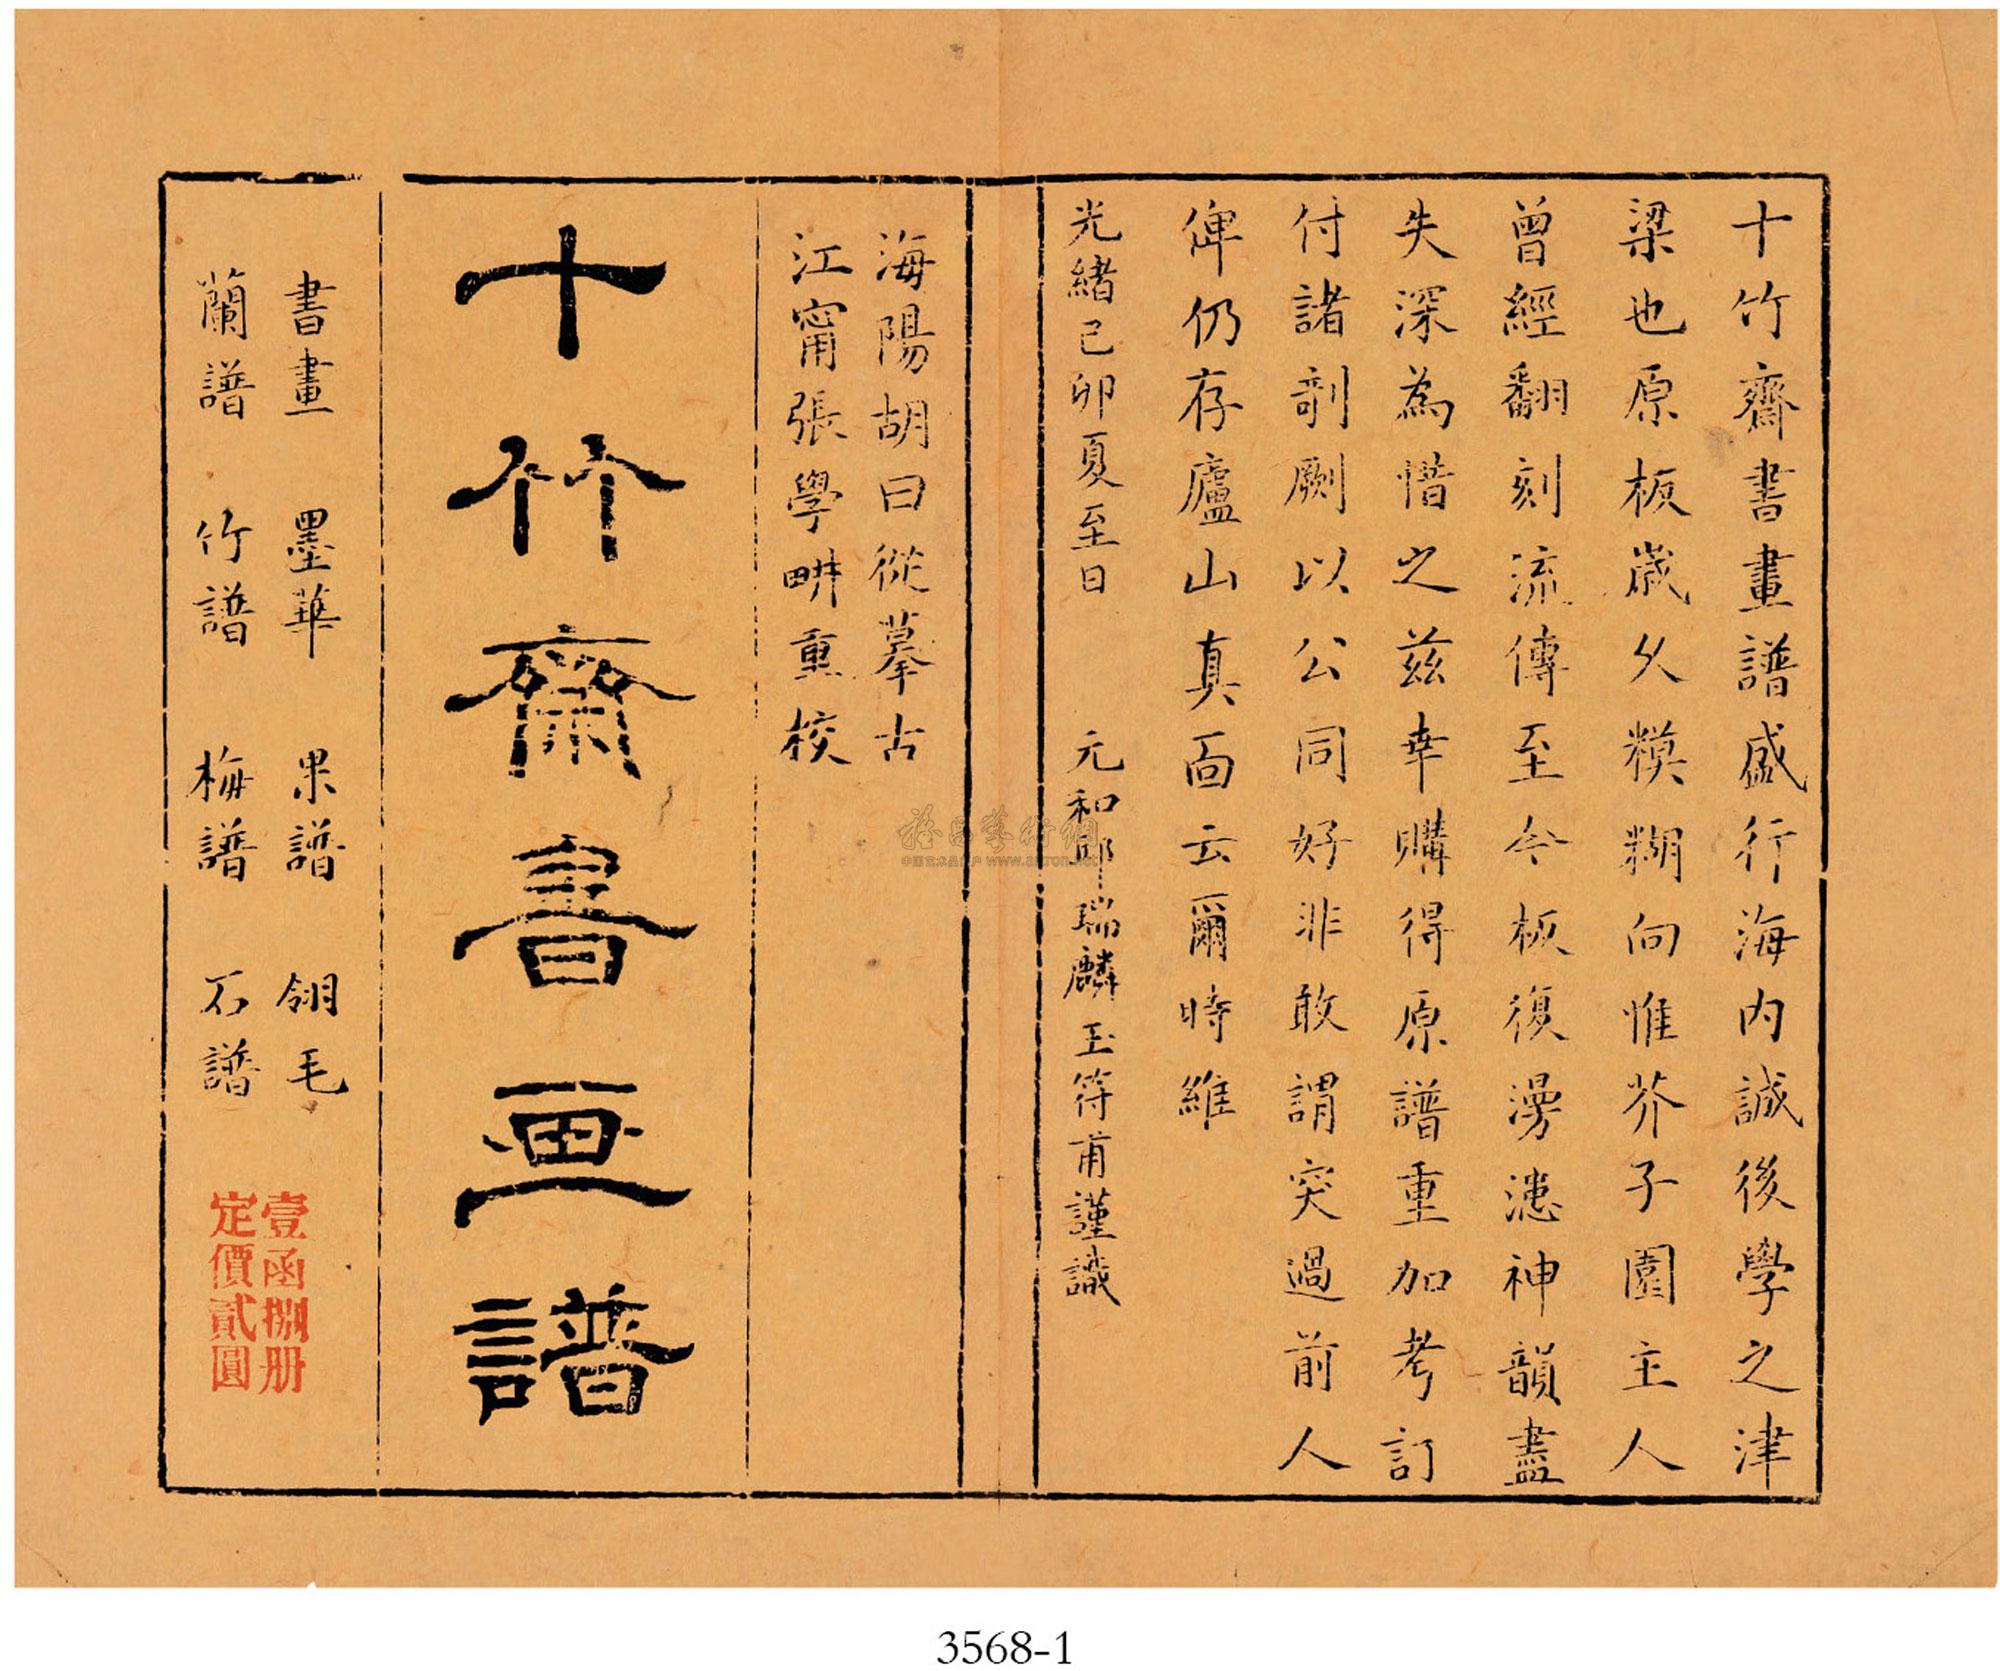 十竹齋書畫譜盛行海内誠後學之津
梁也原板歲久糢糊向惟芥子園主人
曾經翻刻流傳至今板復漫漶神韻盡
失深為惜之兹幸購得原譜重加考訂
付諸剞劂以公同好非敢謂突過前人
俾仍存廬山真面云爾時維
光緒己卯夏至日 元和邱瑞麟玉符甫謹識
海陽胡曰從摹古
江甯張學畊重校
十竹齋書画譜
書畫 墨華 果譜 翎毛
蘭譜 竹譜 梅譜 石譜
壹函捌册
定價貳圓
www.artron.net
3568-1